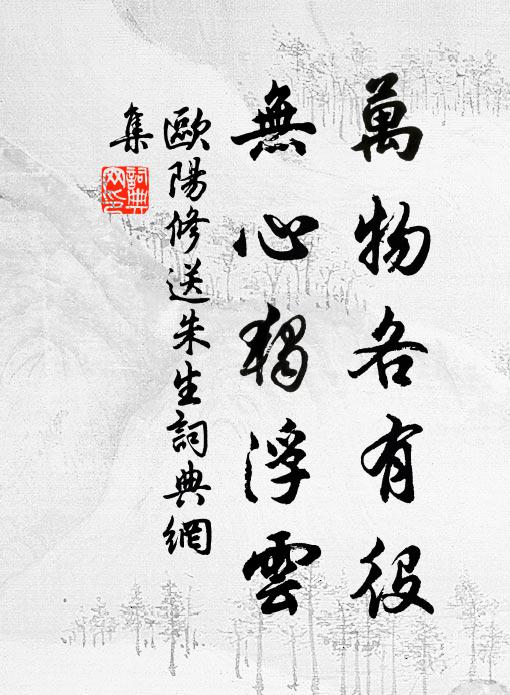 萬物各有役
無心獨浮雲
歐陽修送朱生詞典網
集
詞典